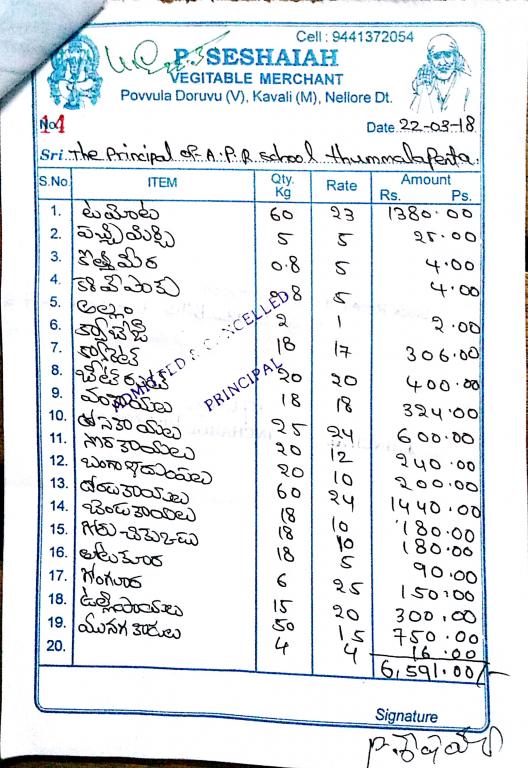 Cell : 9441372054
P. SESHAIAH
VEGITABLE MERCHANT
Povvula Doruvu (V), Kavali (M), Nellore Dt.
No. 14 Date 22-03-18
Sri. The Principal of A.P.R school Thummalapenta.
S.No. ITEM Qty. Kg Rate Amount Rs. Ps.
1. టమోటు 60 23 1380.00
2. పచ్చిమిర్చి 5 5 25.00
3. కొత్తిమీర 0.8 5 4.00
4. కరివేపాకు 0.8 5 4.00
5. అల్లం 2 1 2.00
6. క్యాబేజీ 18 17 306.00
7. క్యారెట్ 20 20 400.00
8. బీట్ రూట్ 18 18 324.00
9. వంకాయలు 25 24 600.00
10. 20 12 240.00
11. సొరకాయలు 20 10 200.00
12. బంగాళాదుంపలు 60 24 1440.00
13. దొండకాయలు 18 10 180.00
14. బెండకాయలు 18 10 180.00
15. గోరుచిక్కుడు 18 5 90.00
16. 6 25 150.00
17. గోంగూర 15 20 300.00
18. ఉల్లిపాయలు 50 15 750.00
19. మునగకాయలు 4 4 16.00
20.
6,591.00/-
ADMITTED & CANCELLED
PRINCIPAL
Signature